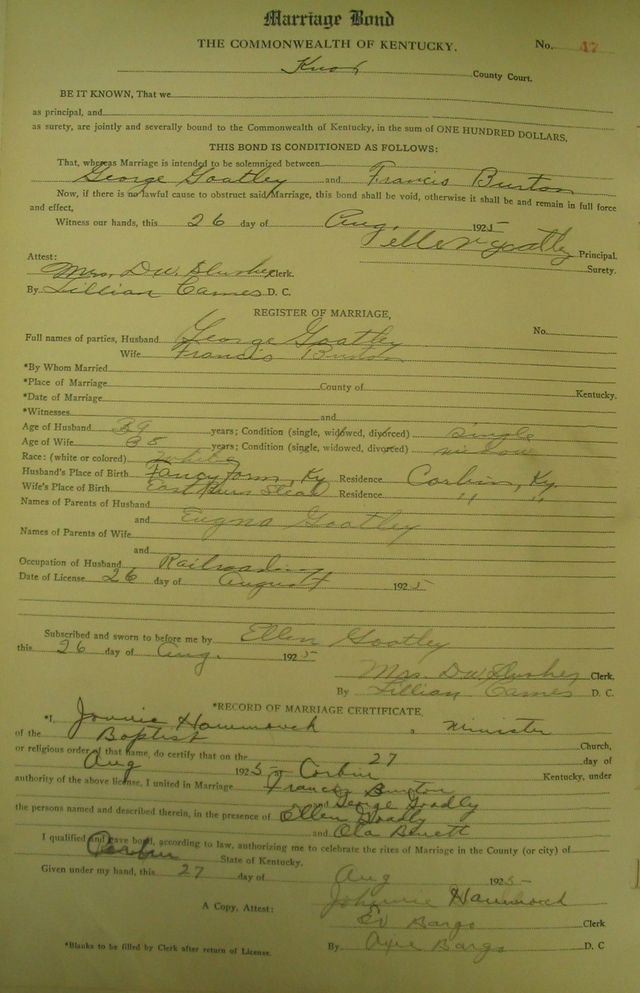 Marriage Bond
THE COMMONWEALTH OF KENTUCKY. No. 47
Knox County Court.
BE IT KNOWN, That we
as principal, and
as surety, are jointly and severally bound to the Commonwealth of Kentucky, in the sum of ONE HUNDRED DOLLARS,
THIS BOND IS CONDITIONED AS FOLLOWS:
That, whereas Marriage is intended to be solemnized between
George Goatley and Francis Burton
Now, if there is no lawful cause to obstruct said Marriage, this bond shall be void, otherwise it shall be and remain in full force
and effect,
Witness our hands, this 26 day of Aug. 1925
Ellen Goatley Principal.
Attest: Surety.
Mrs. D.W. Slusher Clerk.
By Lillian Eames D. C.
REGISTER OF MARRIAGE,
No.
Full names of parties, Husband George Goatley
Wife Francis Burton
*By Whom Married
*Place of Marriage County of Kentucky.
*Date of Marriage
*Witnesses and
Age of Husband 39 years; Condition (single, widowed, divorced) single
Age of Wife 38 years; Condition (single, widowed, divorced) widow
Race: (white or colored) white
Husband's Place of Birth Fancy Farm, Ky Residence Corbin, Ky.
Wife's Place of Birth East Residence " "
Names of Parents of Husband
and Eugna Goatley
Names of Parents of Wife
and
Occupation of Husband Railroading
Date of License 26 day of August 1925
Subscribed and sworn to before me by Ellen Goatley
this 26 day of Aug. 1925
Mrs. D.W. Slusher Clerk.
By Lillian Eames D. C.
*RECORD OF MARRIAGE CERTIFICATE,
*I, Johnie Hammock, Minister
of the Baptist Church,
or religious order of that name, do certify that on the 27 day of
Aug 1925 Corbin Kentucky, under
authority of the above license, I united in Marriage Francis Burton
and George Goadly
the persons named and described therein, in the presence of Ellen Goadly
and Ola
I qualified and gave bond, according to law, authorizing me to celebrate the rites of Marriage in the County (or city) of
Corbin State of Kentucky.
Given under my hand, this 27 day of Aug 1925
Johnnie Hammock
A Copy, Attest: Ed Bargo Clerk
By Bargo D. C
*Blanks to be filled by Clerk after return of License.